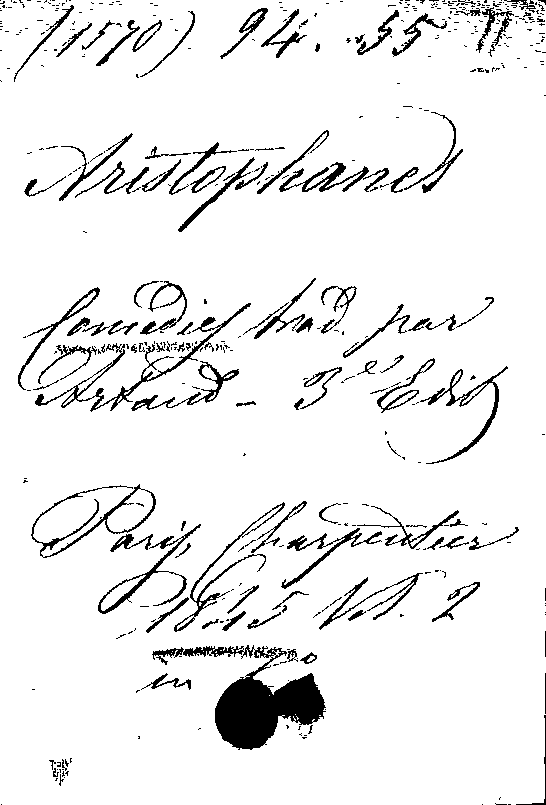 (1570) 94. 55
Aristophanes
Comedies trad. par
Artaud – 3e Edit
Paris, Charpentier
1845 Vol. 2
in